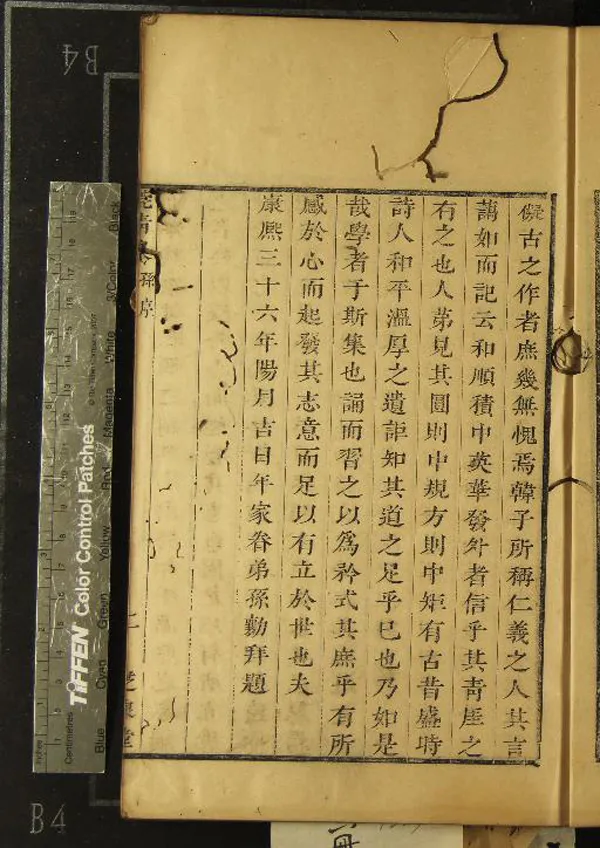 儗古之作者庶幾無愧焉韓子所稱仁義之人其言
藹如而記云和順積中英華發外者信乎其青厓之
有之也人苐見其圓則中規方則中矩有古昔盛時
詩人和平溫厚之遺詎知其道之足乎巳也乃如是
哉學者于斯集也誦而習之以爲矜式其庶乎有所
感於心而起發其志意而足以有立於世也夫
康熙三十六年陽月吉日年家眷弟孫勷拜題
孫序
二
堂
B4
B4
TIFFEN Color Control Patches
© The Tiffen Company, 2007
Inches
Centimetres
Blue
Cyan
Green
Yellow
Red
Magenta
White
3/Color
Black